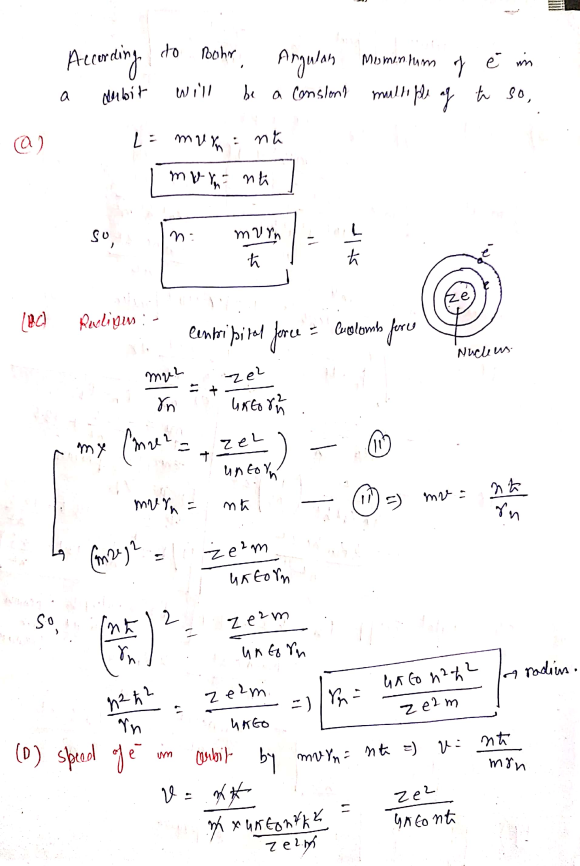 According to Bohr, Angular Momentum of e⁻ in
a orbit will be a constant multiple of ħ so,
(a) L = mvrₙ = nħ
mvrₙ = nħ
so, n = mvrₙ/ħ = L/ħ
e⁻
ze
Nucleus
Radius :-
Centripital force = Coulomb force
mv²/rₙ = + ze²/4πϵ₀rₙ²
mx (mv² = + ze²/4πϵ₀rₙ) — (ii)
mvrₙ = nħ — (ii) ⇒ mv = nħ/rₙ
(mv)² = ze²m/4πϵ₀rₙ
so, (nħ/rₙ)² = ze²m/4πϵ₀rₙ
n²ħ²/rₙ = ze²m/4πϵ₀ ⇒ rₙ = 4πϵ₀n²ħ²/ze²m → radius.
(D) speed of e⁻ in orbit by mvrₙ = nħ ⇒ v = nħ/mrₙ
v = nħ/(m x 4πϵ₀n²ħ²/ze²m) = ze²/4πϵ₀nħ